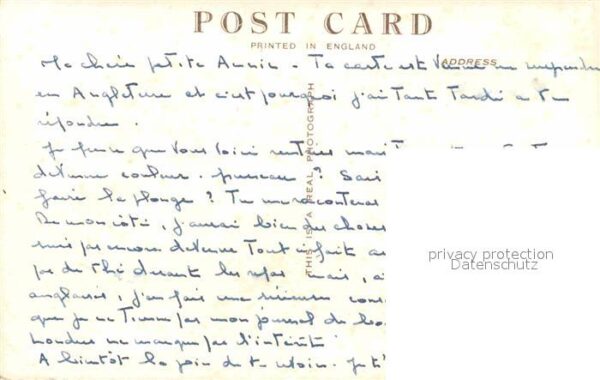 POST CARD
PRINTED IN ENGLAND
ADDRESS
THIS IS A REAL PHOTOGRAPH
Ma chère petite Annie - Ta carte est venue me
en Angleterre et c'est pourquoi j'ai tant tardé à te
répondre.
Je pense que vous voici
devenue couleur pruneau ? Sais
faire la plonge ? Tu me raconteras
De mon côté, j'aurai bien des choses
suis pas encore devenue tout à fait
pas de thé durant les repas mais,
anglaises, j'en fais une sérieuse
que je ne tienne pas mon journal de
Londres ne manque pas d'intérêt
A bientôt la joie de te voir. Je t'
privacy protection
Datenschutz